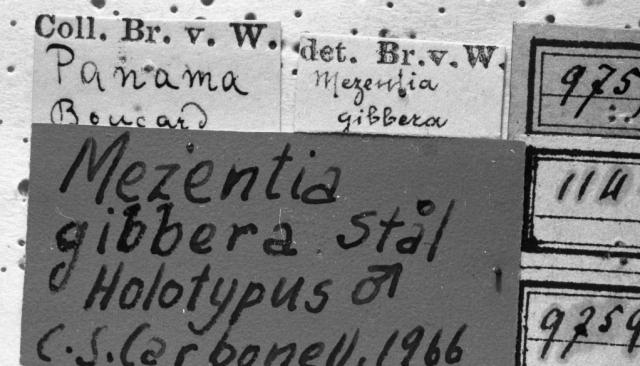 Coll. Br. v. W.
Panama
Boucard
det. Br. v. W.
Mezentia
gibbera
Mezentia
gibbera Stål
Holotypus ♂
C.S. Carbonell. 1966
975
114
9759